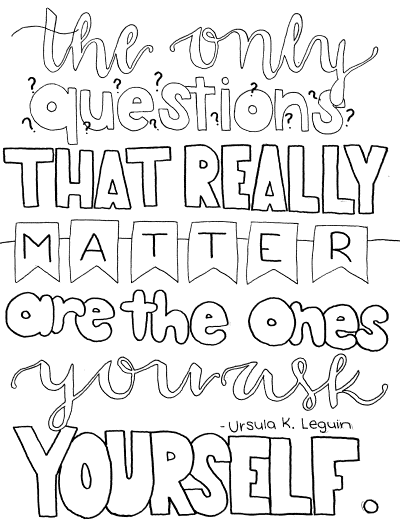 the only
questions
THAT REALLY
MATTER
are the ones
you ask
- Ursula K. Leguin
YOURSELF.